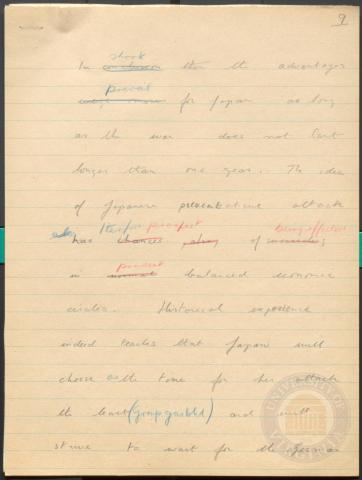 9
short
In conclusion then the advantages
prevail
for Japan as long
as the war does not last
longer than one year. The idea
of Japanese preventative attack
therefore prospect being effective
has chances of
present
in normal balanced economic
circles. Historical experience
indeed teaches that Japan will
choose as the time for her attack
the least (group garbled) and will
strive to wait for the German